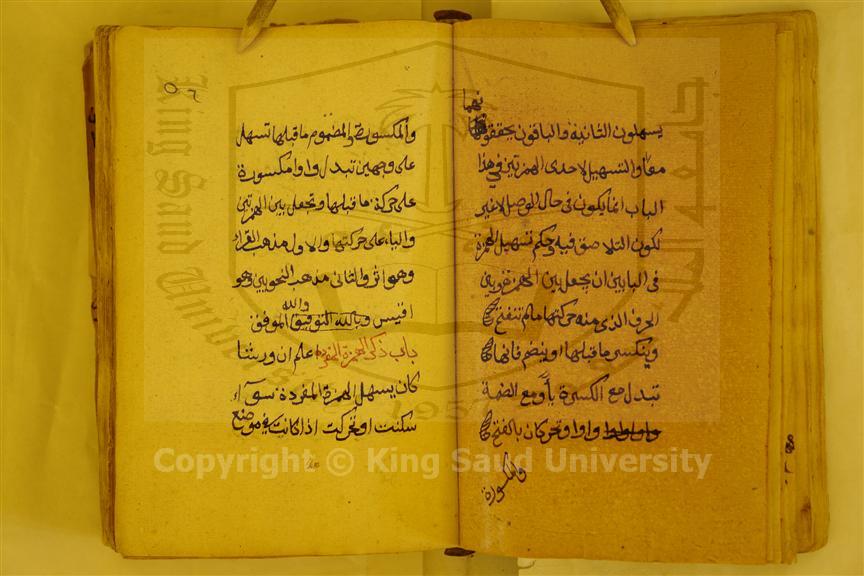 نهما
يسهلون الثانية والباقون يحققو
معا والتسهيل لاحدى الهمزتين في هذا
الباب انما يكون في حال الوصل لاغير
لكون التلاصق فيه وحكم تسهيل الهمزة
في البابين ان يجعل بين الهمزة وبين
الحرف الذى منه حركتها مالم تنفتح
وينكسر ما قبلها او ينضم فانها
تبدل مع الكسرة ياً ومع الضمة
واوا وتحركان بالفتح
والمكسورة
والمكسورة والمضموم ما قبلها تسهل
على وجهين تبدل واوا مكسورة
على حركة ما قبلها وتجعل بين الهمزتين
والياء على حركتها والاول مذهب القراء
وهو اثر والثانى مذهب النحويين وهو
اقيس وبالله التوفيق والله الموفق
باب ذكر الهمزة المفرده اعلم ان ورشا
كان يسهل الهمزة المفردة سوآء
سكنت او تحركت اذا كانت في موضع
جامعة الملك
King Saud University
195
Copyright © King Saud University